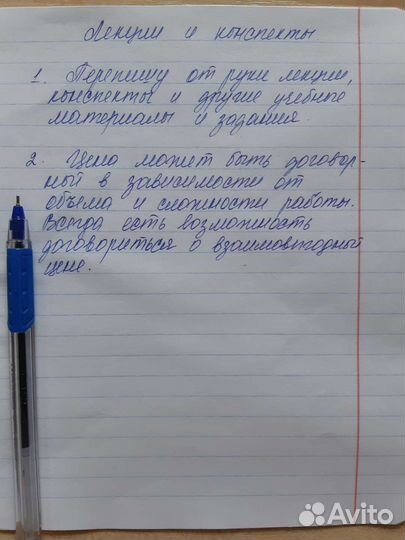 Лекции и конспекты
1. Перепишу от руки лекции,
конспекты и другие учебные
материалы и задания.
2. Цена может быть договор-
ной в зависимости от
объема и сложности работы.
Всегда есть возможность
договориться о взаимовыгодный
цене.
Avito